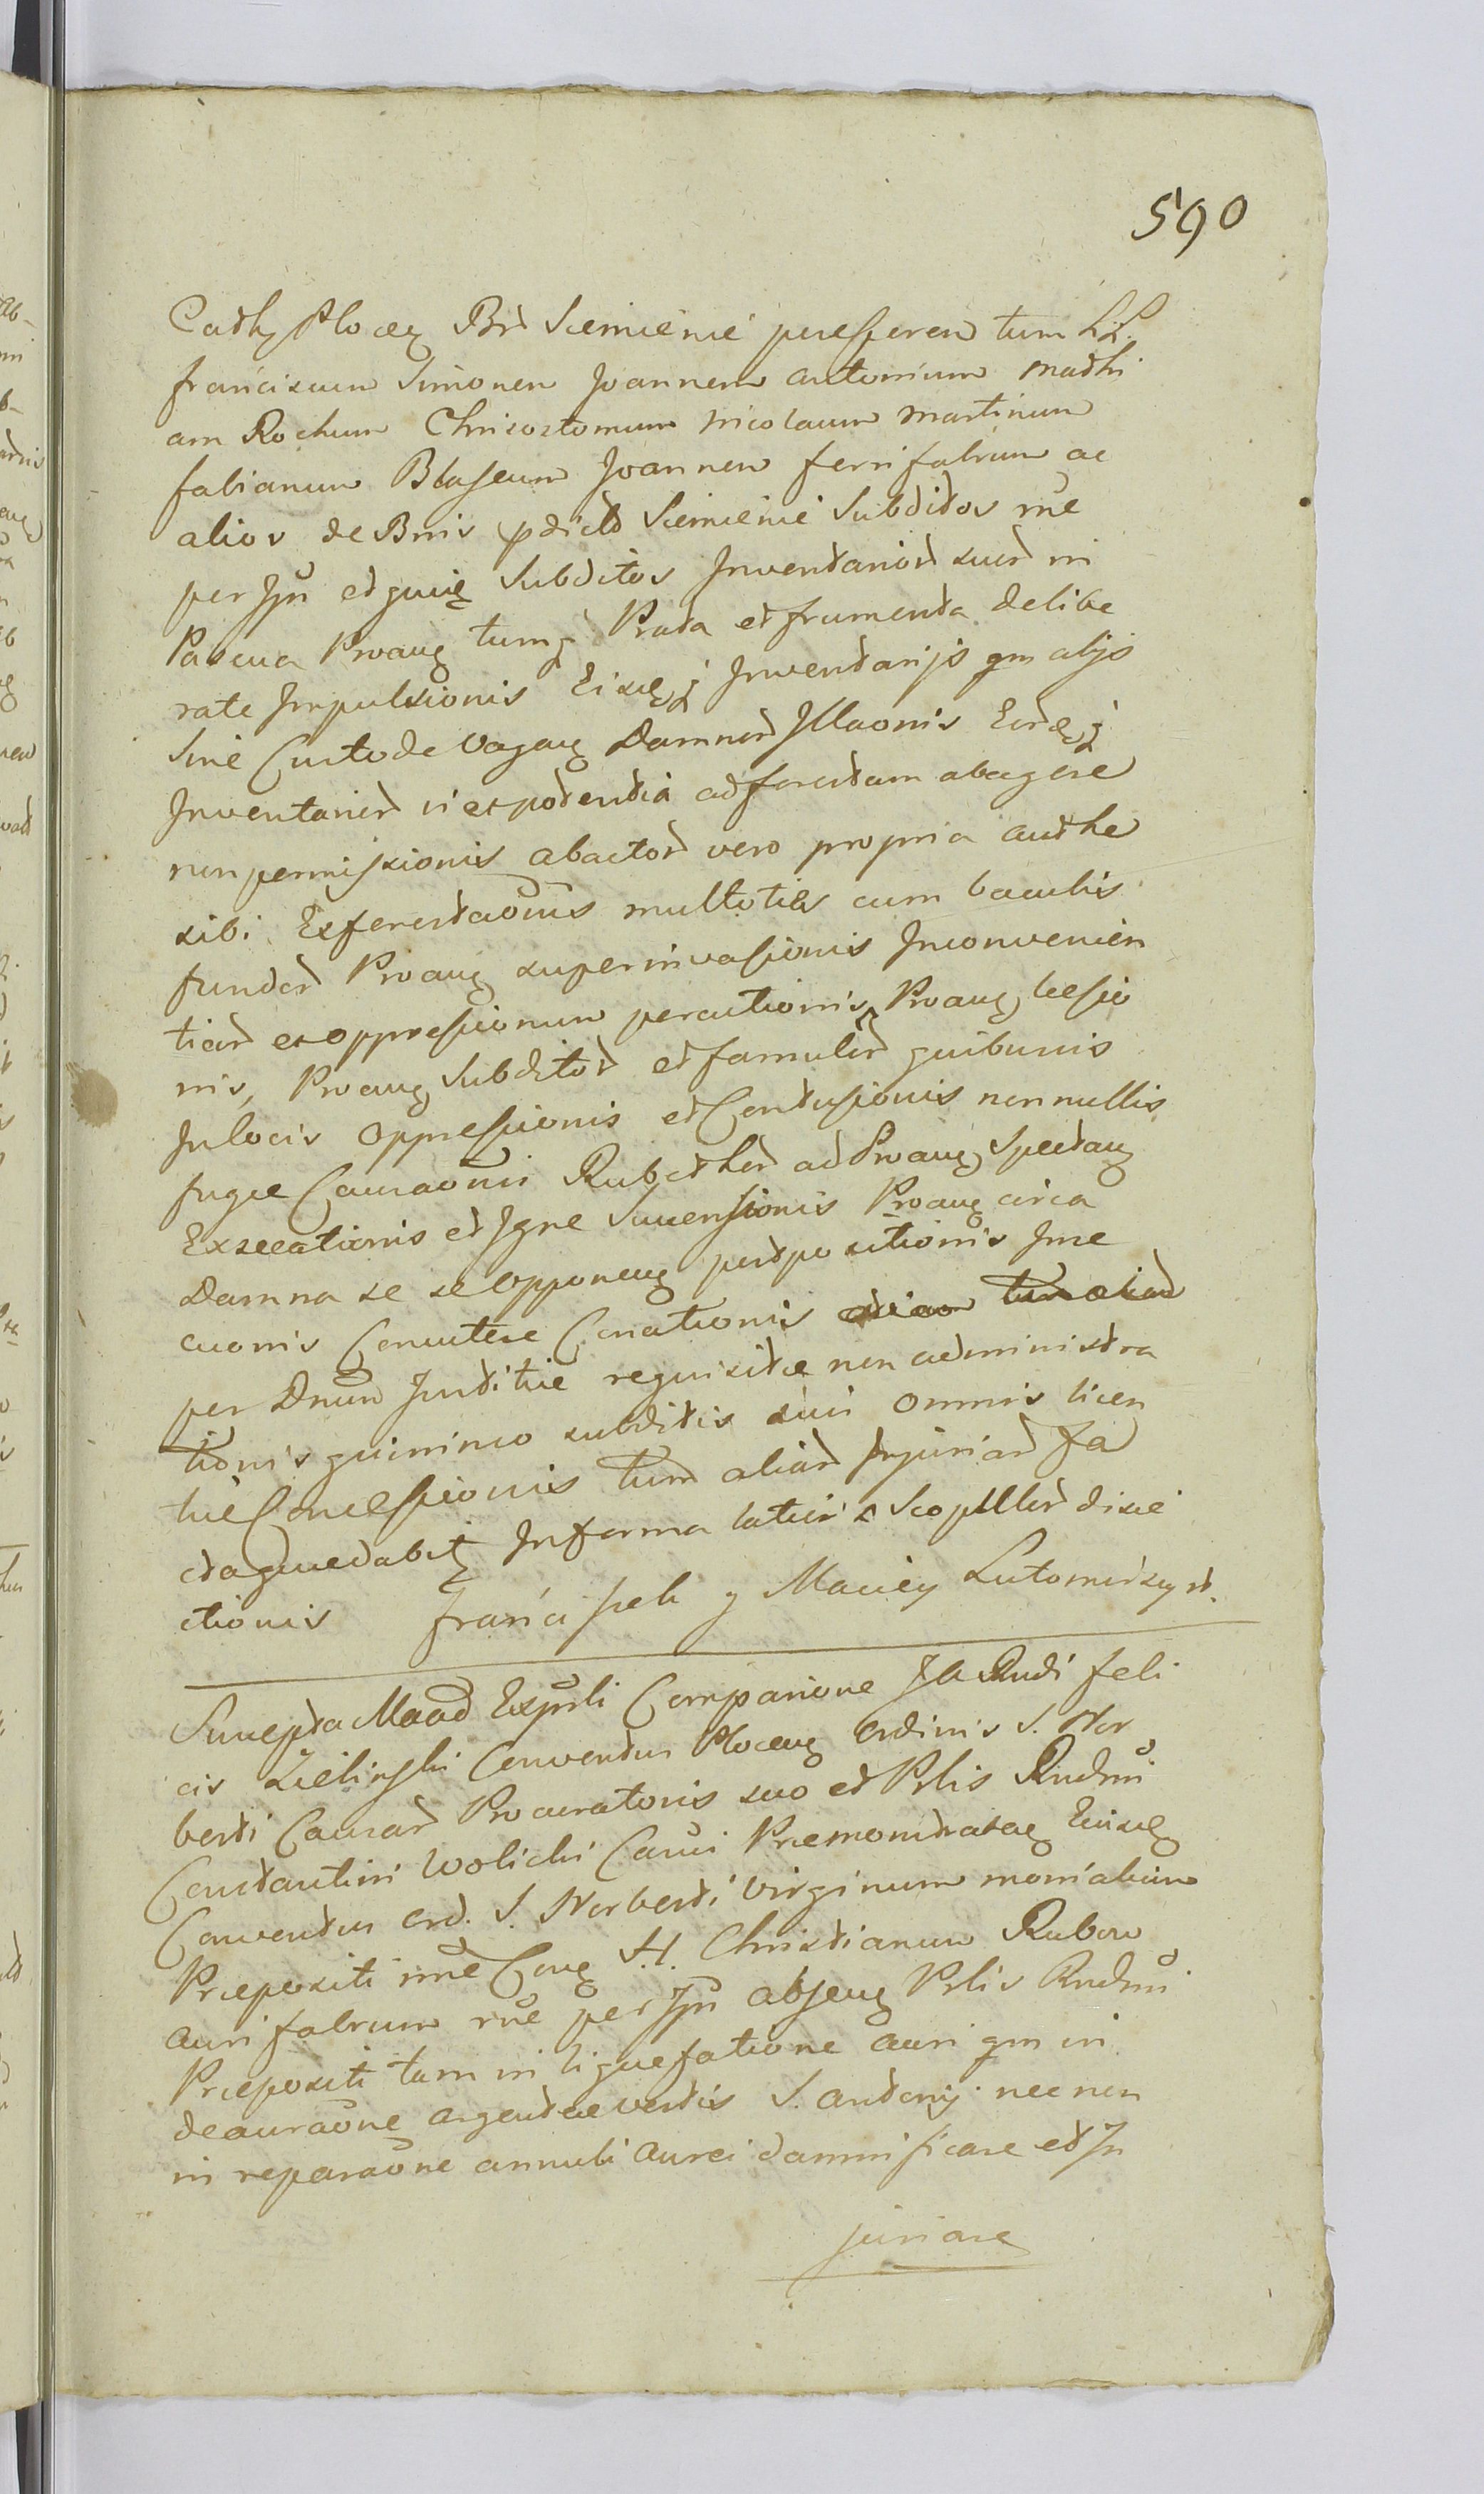 590
Cathy Plocen Br̃d Siemienie possessorem tum LL.
franciscum Simonem Joannem antonium mathi
am Rochum Chrisostomum nicolaum martinum
fabianum Blasium Joannem ferrifabrum ac
alios de Bnis pdictd Siemienie Subditos rñe
per Jpũ et quie Subditos Inventariord suord in
Pascua Proang tumq Prata et frumenta delibe
rate Jmpulsionis Eisdq Jnventarijs qm alijs
Sine Custode vagang Damnord Jllaonis Eordq
Jnventariord in et potentia ad forestam abagere
non permissionis abactord vero propria authe
sibi Exforestaõnis multoties cum baculis
fundord Proang superinvasionis Jnconvenien
tiard et oppressionum percutionis Proang, lesio
nis, Proang Subditord et famulord quibusvis
Jn locis oppressionis et Contusionis nonnullis
fugae Causaõnis Rubethord ad Proang Spectang
Exsecationis et Jgne Succensionis Proang circa
Damna se se opponeng postpositionis Jnse
cuonis Concutere Conationis tum aliard
per Dnum Justitiae requisitae non administra
tionis quinimo subditis suis omnis licen
tiae Concessionis tum aliard Jnjuriard fa
ctaque dabit Jnforma latiori Scopulord disie
ctionis franciszek y Maciey Lutomirscy
Suscepta Mand Expũli Comparitione Jll Rndi feli
cis Zielinski Conventus Plocen ordinis S. Nor
berti Causard Procuratoris suo et Prlis Rndmi
Constantini Wolicki Canci Praemonstraten Eiusdq
Conventus ord. S. Norberti Virginum monialium
Praepositi nñe Cong. H. Christianum Rubow
aurifabrum rñe per Jpũ absen Prlis Rndmi
Praepositi tam in liquefatione auri qm in
deauraõne argenteae vestis S. antonij nec non
in reparaõne annuli aurei damnificare et Jn
juriare